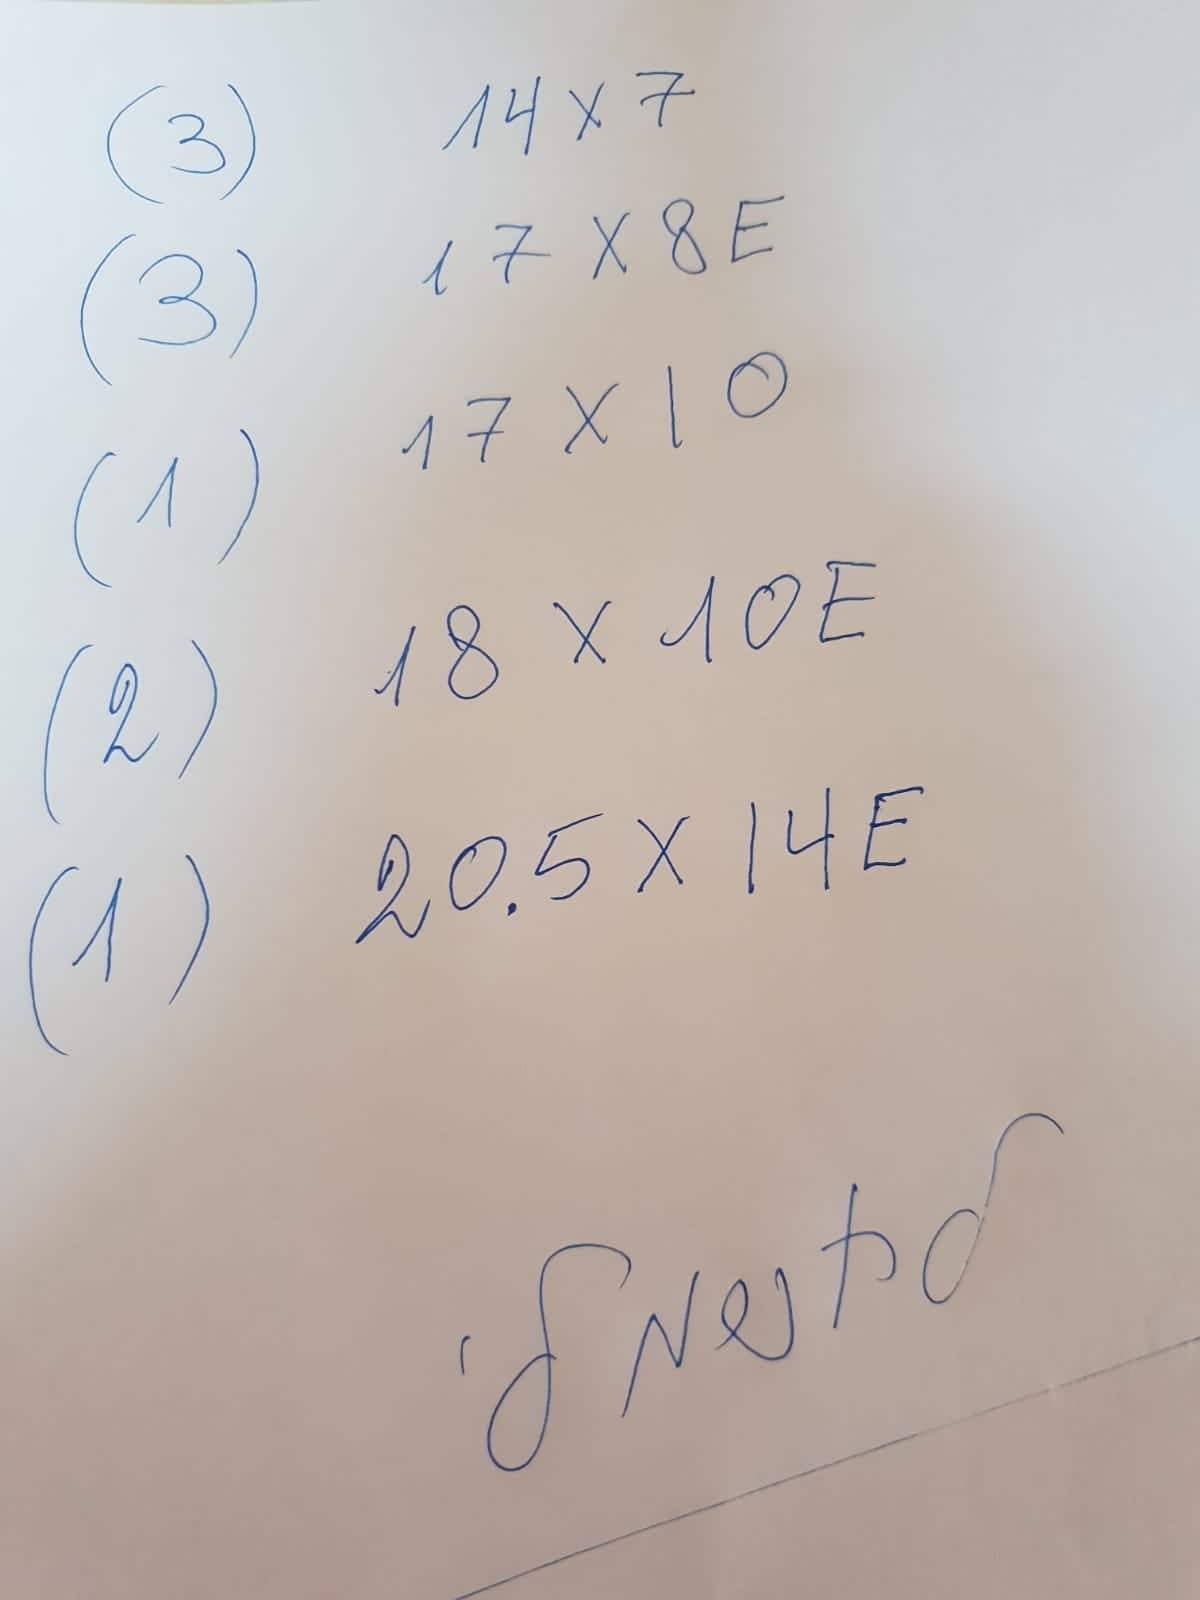 (3) 14 x 7
(3) 17 x 8E
(1) 17 x 10
(2) 18 x 10E
(1) 20.5 x 14E